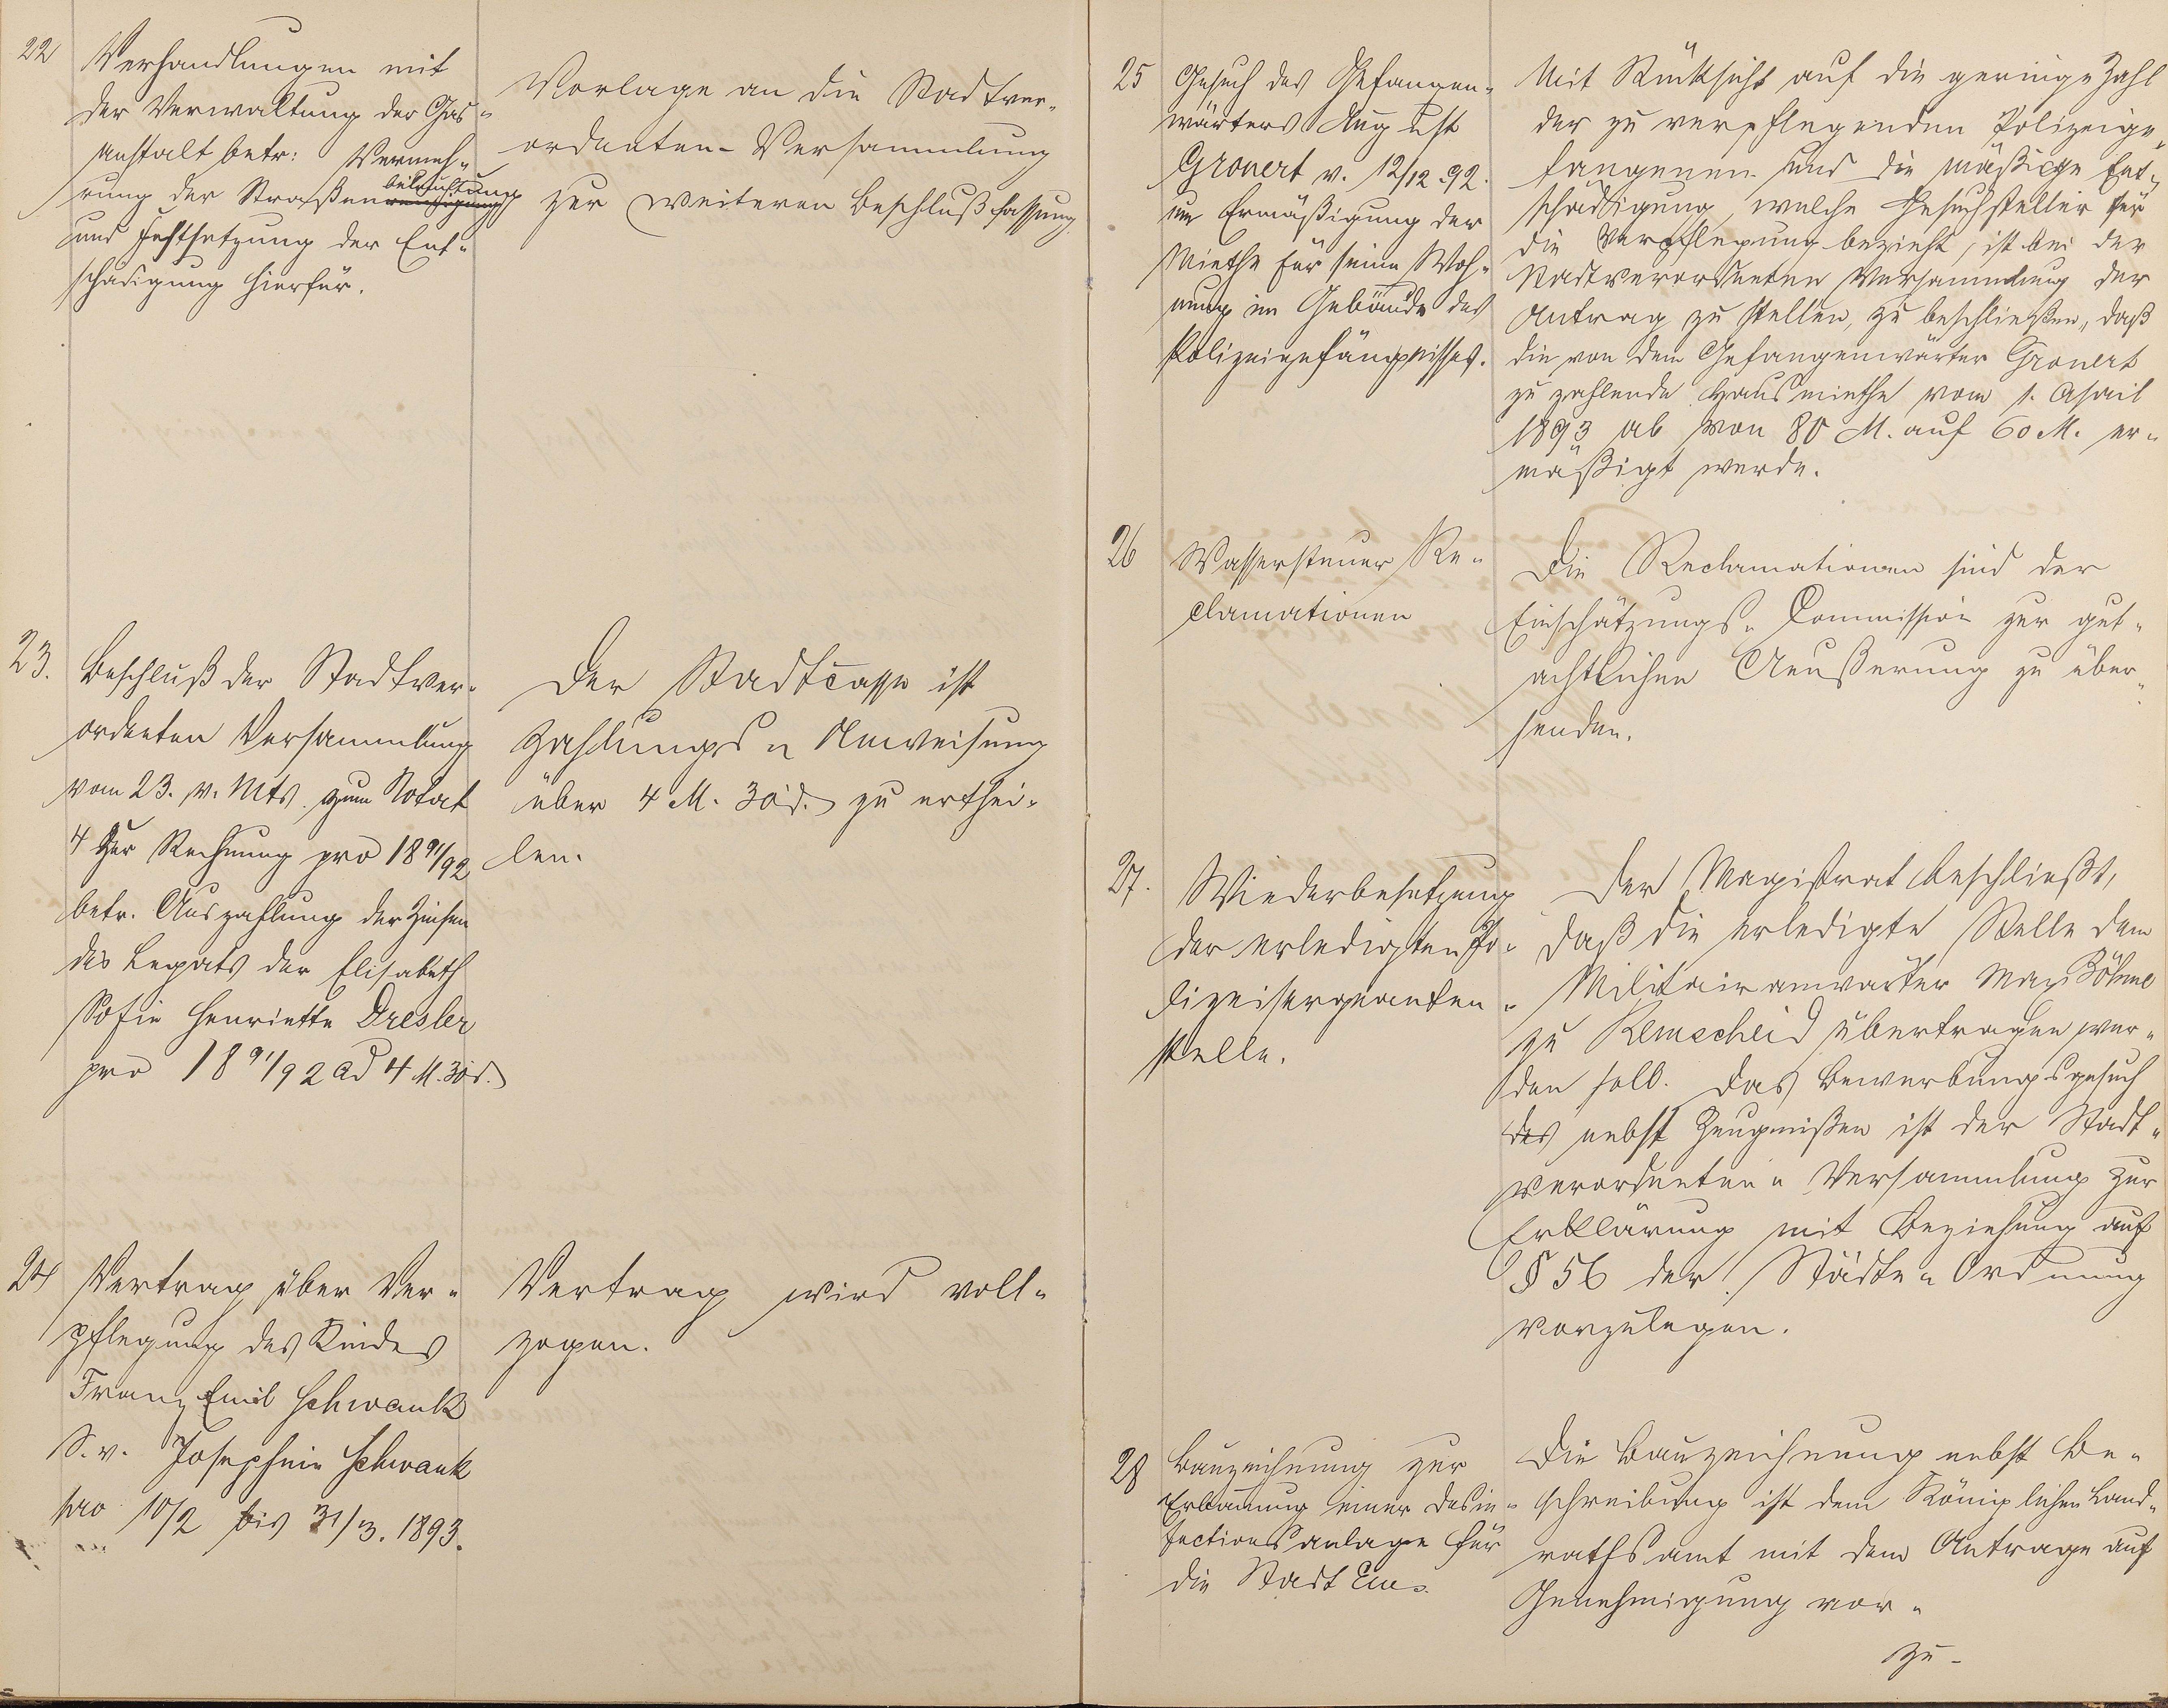 22
Verhandlungen mit
der Verwaltung der Gas-
Anstalt betr: Vermeh-
rung der Straßenreinigung beleuchtung
und Festsetzung der Ent-
schädigung hierfür.
Vorlage an die Stadtver-
ordneten-Versammlung
zur weiteren Beschlußfassung
23.
Beschluß der Stadtver-
ordneten Versammlung
vom 23. v. Mts. zum Notat
4 zur Rechnung pro 1891/92
betr. Auszahlung der Zinsen
des Legats der Elisabeth
Sofie Henriette Dresler
pro 1891/92 ad 4 M. 30 d.
Der Stadtcasse ist
Zahlungs-Anweisung
über 4 M. 30 d. zu erthei-
len.
24
Vertrag über Ver-
pflegung des Kindes
Franz Emil Schwank
S. v. Josephine Schwank
pro 10/2 bis 31/3. 1893.
Vertrag wird voll-
zogen.
25
Gesuch des Gefangen-
wärters August
Gronert v. 12/12.92.
um Ermäßigung der
Miethe für seine Woh-
nung im Gebäude des
Polizeigefängnisses.
Mit Rücksicht auf die geringe Zahl
der zu verpflegenden Polizeige-
fangenen und die mäßige Ent-
schädigung, welche Gesuchsteller für
die Verpflegung bezieht, ist bei der
Stadtverordneten Versammlung der
Antrag zu stellen, zu beschließen, daß
die von dem Gefangenwärter Gronert
zu zahlende Hausmiethe vom 1. April
1893 ab von 80 M. auf 60 M. er-
mäßigt werde.
26
Wassersteuer Re-
clamationen
Die Reclamationen sind der
Einschätzungs-Commission zur gut-
achtlichen Aeußerung zu über-
senden.
27.
Wiederbesetzung
der erledigten Po-
lizeisergeanten-
stelle.
Der Magistrat beschließt,
daß die erledigte Stelle dem
Militairanwärter Max Böhme
zu Remscheid übertragen wer-
den soll. Das Bewerbungsgesuch
des nebst Zeugnißen ist der Stadt-
verordneten-Versammlung zur
Erklärung mit Beziehung auf
§ 56 der Städte-Ordnung
vorzulegen.
28
Bauzeichnung zur
Erbauung einer Desin-
fectionsanlage für
die Stadt Ems.
Die Bauzeichnung nebst Be-
schreibung ist dem Königlichen Land-
rathsamt mit dem Antrage auf
Genehmigung vor-
zu-